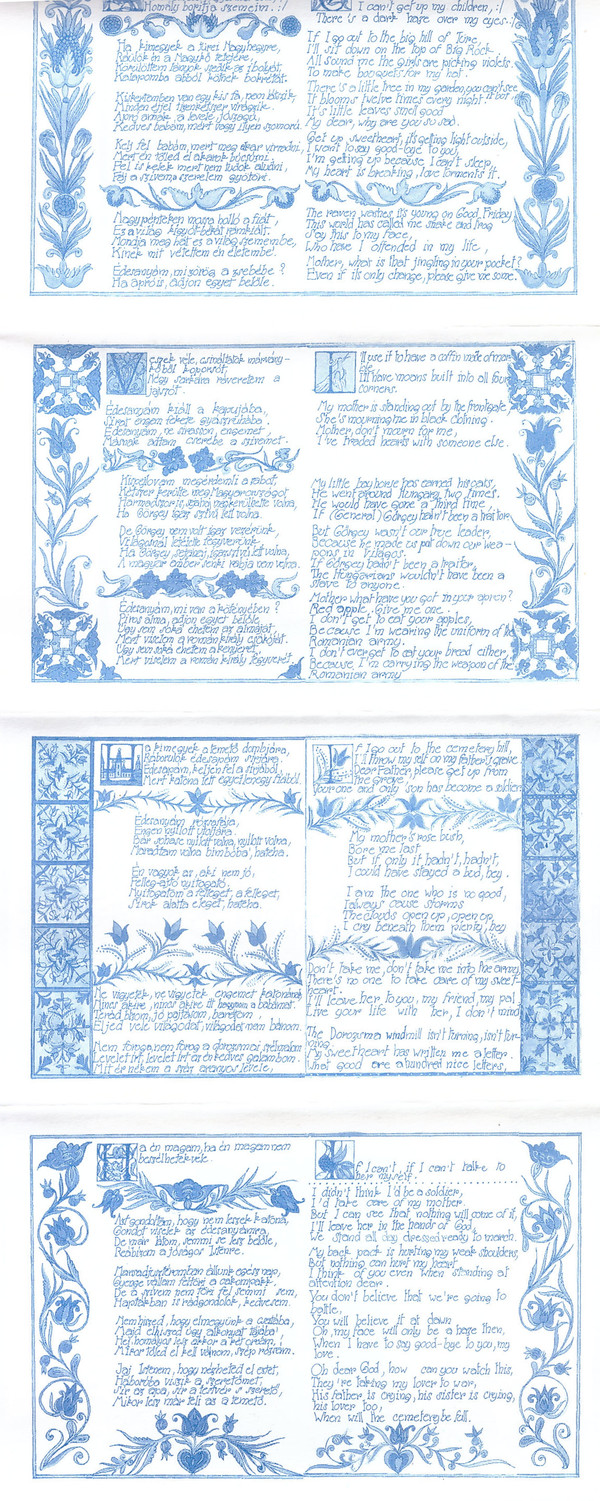 Homály borítja szemeim. :/
Ha kimegyek a türei Nagyhegyre,
Leülök én a Nagykő tetejére,
Körülöttem lányok szedik az ibolyát,
Kalapomba abból kötnek bokrétát.
Kiskertemben van egy kis fa, nem látszik,
Minden éjjel tizenkétszer virágzik.
Apró annak a levele, jószagú,
Kedves babám, mért vagy ilyen szomorú.
Kelj fel babám, mert meg akar virradni,
Mert én tőled el akarok búcsúzni.
Fel is kelek mert nem tudok aludni,
Fáj a szívem a szerelem gyötöri.
Nagypénteken mossa holló a fiát,
Ez a világ kígyót-békát rám kiált.
Mondja meg hát ez a világ szemembe,
Kinek mit vétettem én életembe!
Édesanyám, mi zörög a zsebébe?
Ha aprója is, adjon egyet belőle.
I can't get up my children, :/
There is a dark haze over my eyes. :/
If I go out to the big hill of Türe
I'll sit down on the top of Big Rock.
All sound me the girls are picking violets.
To make bouquets for my hat.
There's a little tree in my garden, you can't see it but
It blooms twelve times every night.
It's little leaves smell good
My dear, why are you so sad.
Get up sweetheart, it's getting light outside,
I want to say good-bye to you,
I'm getting up because I can't sleep,
My heart is breaking, love torments it.
The raven washes it's young on Good Friday
This world has called me snake and frog
Say this to my face,
Who have I offended in my life,
Mother, what is that jingling in your pocket?
Even if its only change, please give me some.
Veszek véle, csináltatok márvány-
kőből koporsót,
Négy sarkára raveretem a
jajszót.
Édesanyám kiáll a kapujába,
Sirat engem fekete gyászruhába.
Édesanyám, ne sirasson, engemet
Másnak adtam cserébe a szívemet.
Kispejlovam megérdemli a zabot,
Kétszer kerülte meg Magyarországot
Harmadszor is, szabni megkerülte volna,
Ha Görgey igaz szívű lett volna.
De Görgey nem volt igaz vezérünk,
Világosnál letétette fegyverünk,
Ha Görgey sehaza, igazszívű lett volna,
A magyar ember senki rabja nem volna.
Édesanyám, mi van a kötényében?
Piros alma, adjon egyet belőle,
Úgy sem soká ehetem az almáját,
Mert viselem a román király csákóját.
Úgy sem soká ehetem a kenyerét,
Mert viselem a román király fegyverét
I'll use it to have a coffin made of mar-
ble,
I'll have moans built into all four
corners.
My mother is standing out by the frontgate,
She's mourning me in black clothing.
Mother, don't mourn for me,
I've traded hearts with someone else.
My little bay horse has earned his oats,
He went around Hungary two times.
He would have gone a third time,
If (General) Görgey hadn't been a traitor
But Görgey wasn't our true leader,
Because he made us put down our wea-
pons in Világos.
If Görgey hadn't been a traitor,
The Hungarians wouldn't have been a
slave to anyone.
Mother what have you got in your apron?
Red apple. Give me one.
I don't get to eat your apples,
Because I'm wearing the uniform of the
Romanian army.
I don't ever get to eat your bread either,
Because, I'm carrying the weapon of the
Romanian army
Ha kimegyek a temető dombjára,
Ráborulok édesapám sírjára.
Édesapám, keljen fel a sírjából,
Mert katona lett egyetlenegy fiából.
Édesanyám rózsafája,
Engem nyílott utoljára.
Bár sohase nyílott volna, nyílott volna,
Maradtam volna bimbóba, hateha.
Én vagyok az, aki nem jó,
Felleg-ajtó nyitogató.
Nyitogatom a felleget, a felleget,
Sírok alatta eleget, hateha.
Ne vigyetek, ne vigyetek, engemet katonának
Nincs akire, nincs akire itt hagyjam a babámat.
Terád bízom, jó pajtásom, barátom,
Éljed véle világodat, világodat nem bánom.
Nem forog, nem forog a dorozsmai szélmalom
Levelet írt, levelet írt az én kedves galambom.
Mit ér nékem a száz aranyos levele,
If I go out to the cemetery hill,
I'll throw my self on my father's grave.
Dear Father, please get up from
The grave,
Your one and only son has become a soldier.
My mother's rose bush,
Bore me last,
But if only it hadn't, hadn't,
I could have stayed a bud, hey.
I am the one who is no good,
I always cause storms
The clouds open up, open up
I cry beneath them plenty, hey
Don't take me, don't take me into the army,
There's no one to take care of my sweet-
heart.
I'll leave her to you, my friend, my pal
Live your life with her, I don't mind
The Dorozsma windmill isn't turning, isn't tur-
ning,
My sweetheart has written me a letter.
What good are a hundred nice letters,
Ha én magam, ha én magam nem
beszélhetek véle.
Azt gondoltam, hogy nem leszek katona,
Gondot viselek az édesanyámra,
De már látom, semmi se lesz belőle,
Reábízom a jóságos Istenre.
Marsadjusztéromban állunk egész nap,
Gyenge vállam feltöri a cakompakk.
De a szívem nem töri fel semmi sem,
Haptákban is rádgondolok, kedvesem.
Nem hiszed, hogy elmegyünk a csatába,
Majd elhiszed úgy alkonyat tájába!
Hej, homályos lesz akkor a két orcám,
Mikor tőled el kell válnom, szép rózsám.
Jaj Istenem, hogy nézheted el eztet,
Háborúba viszik a szeretőmet,
Sír az apa, sír a testvér s szerető,
Mikor lesz már teli az a temető.
If I can't, if I can't talke to
her myself.
I didn't think I'd be a soldier,
I'd take care of my mother.
But I can see that nothing will come of it,
I'll leave her in the hands of God,
We stand all day dressed ready to march.
My back pack is hurting my weak shoulders,
But nothing can hurt my heart
I think of you even when standing at
attention dear.
You don't believe that we're going to
battle,
You will believe it at dawn
Oh, my face will only be a haze then,
When I have to say good-bye to you, my
love.
Oh dear God, how can you watch this,
They're taking my lover to war,
His father is crying, his sister is crying,
his lover too,
When will the cemetery be full.